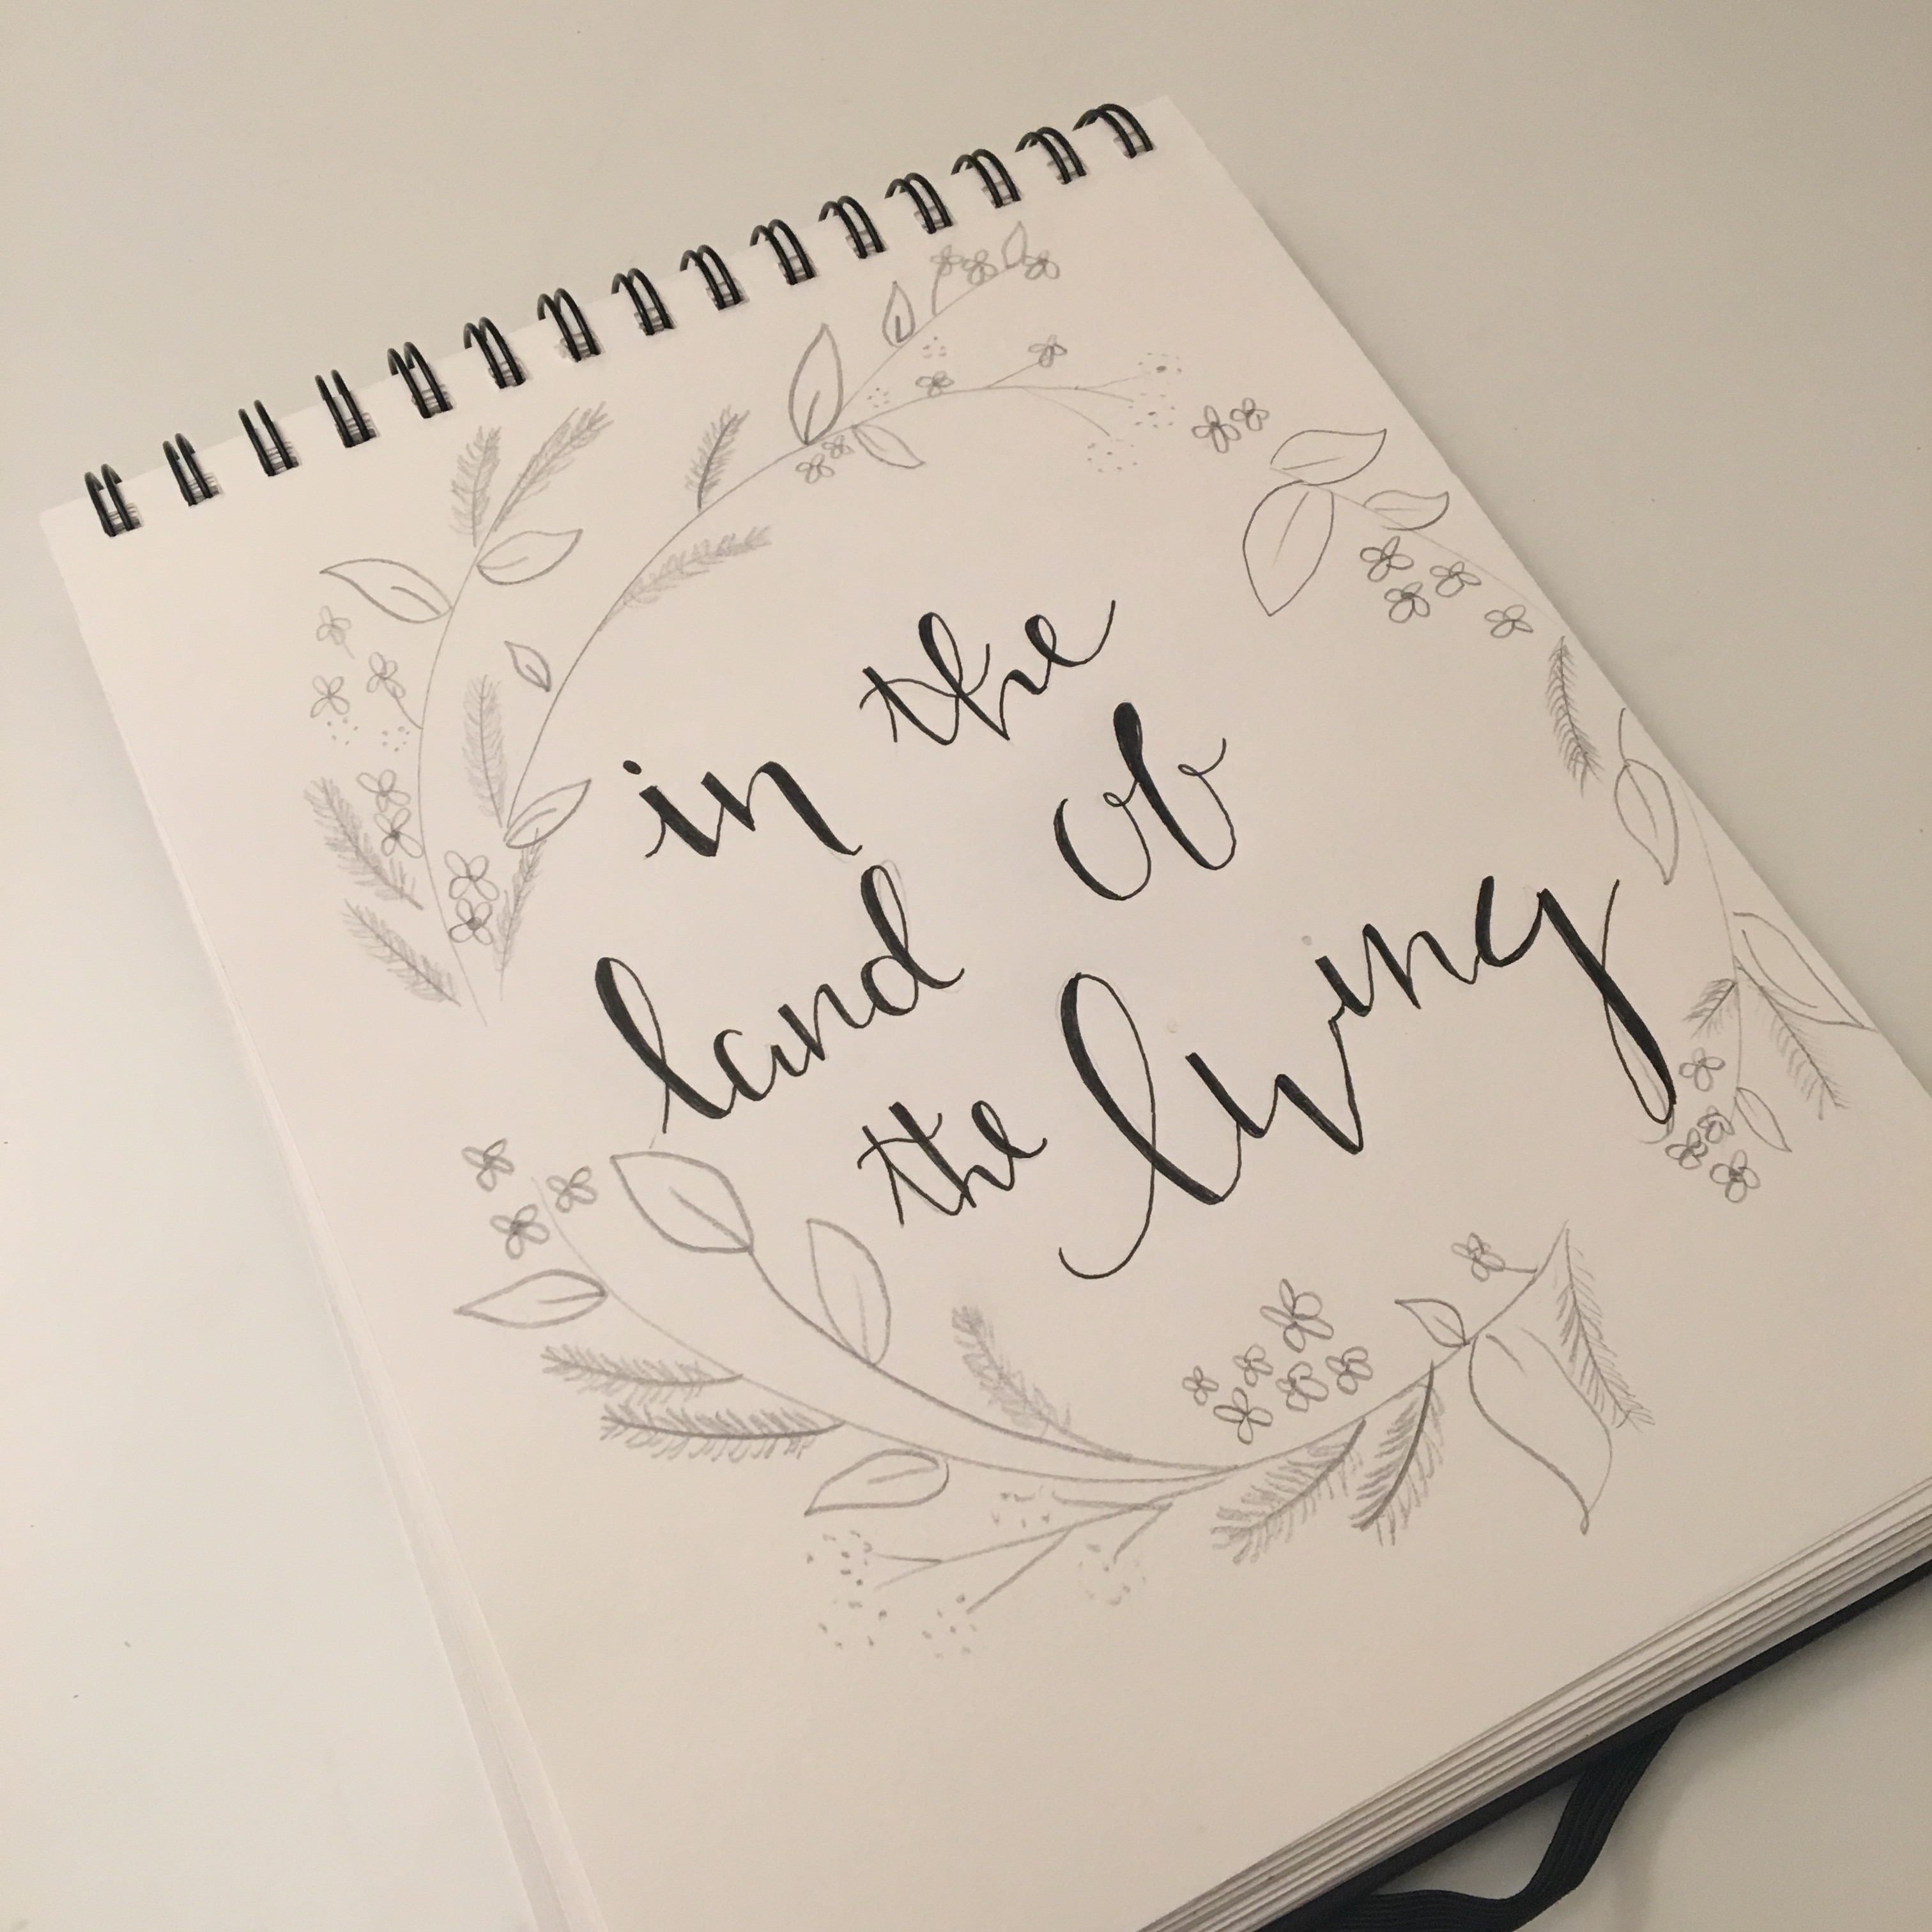 in the
land of
the living